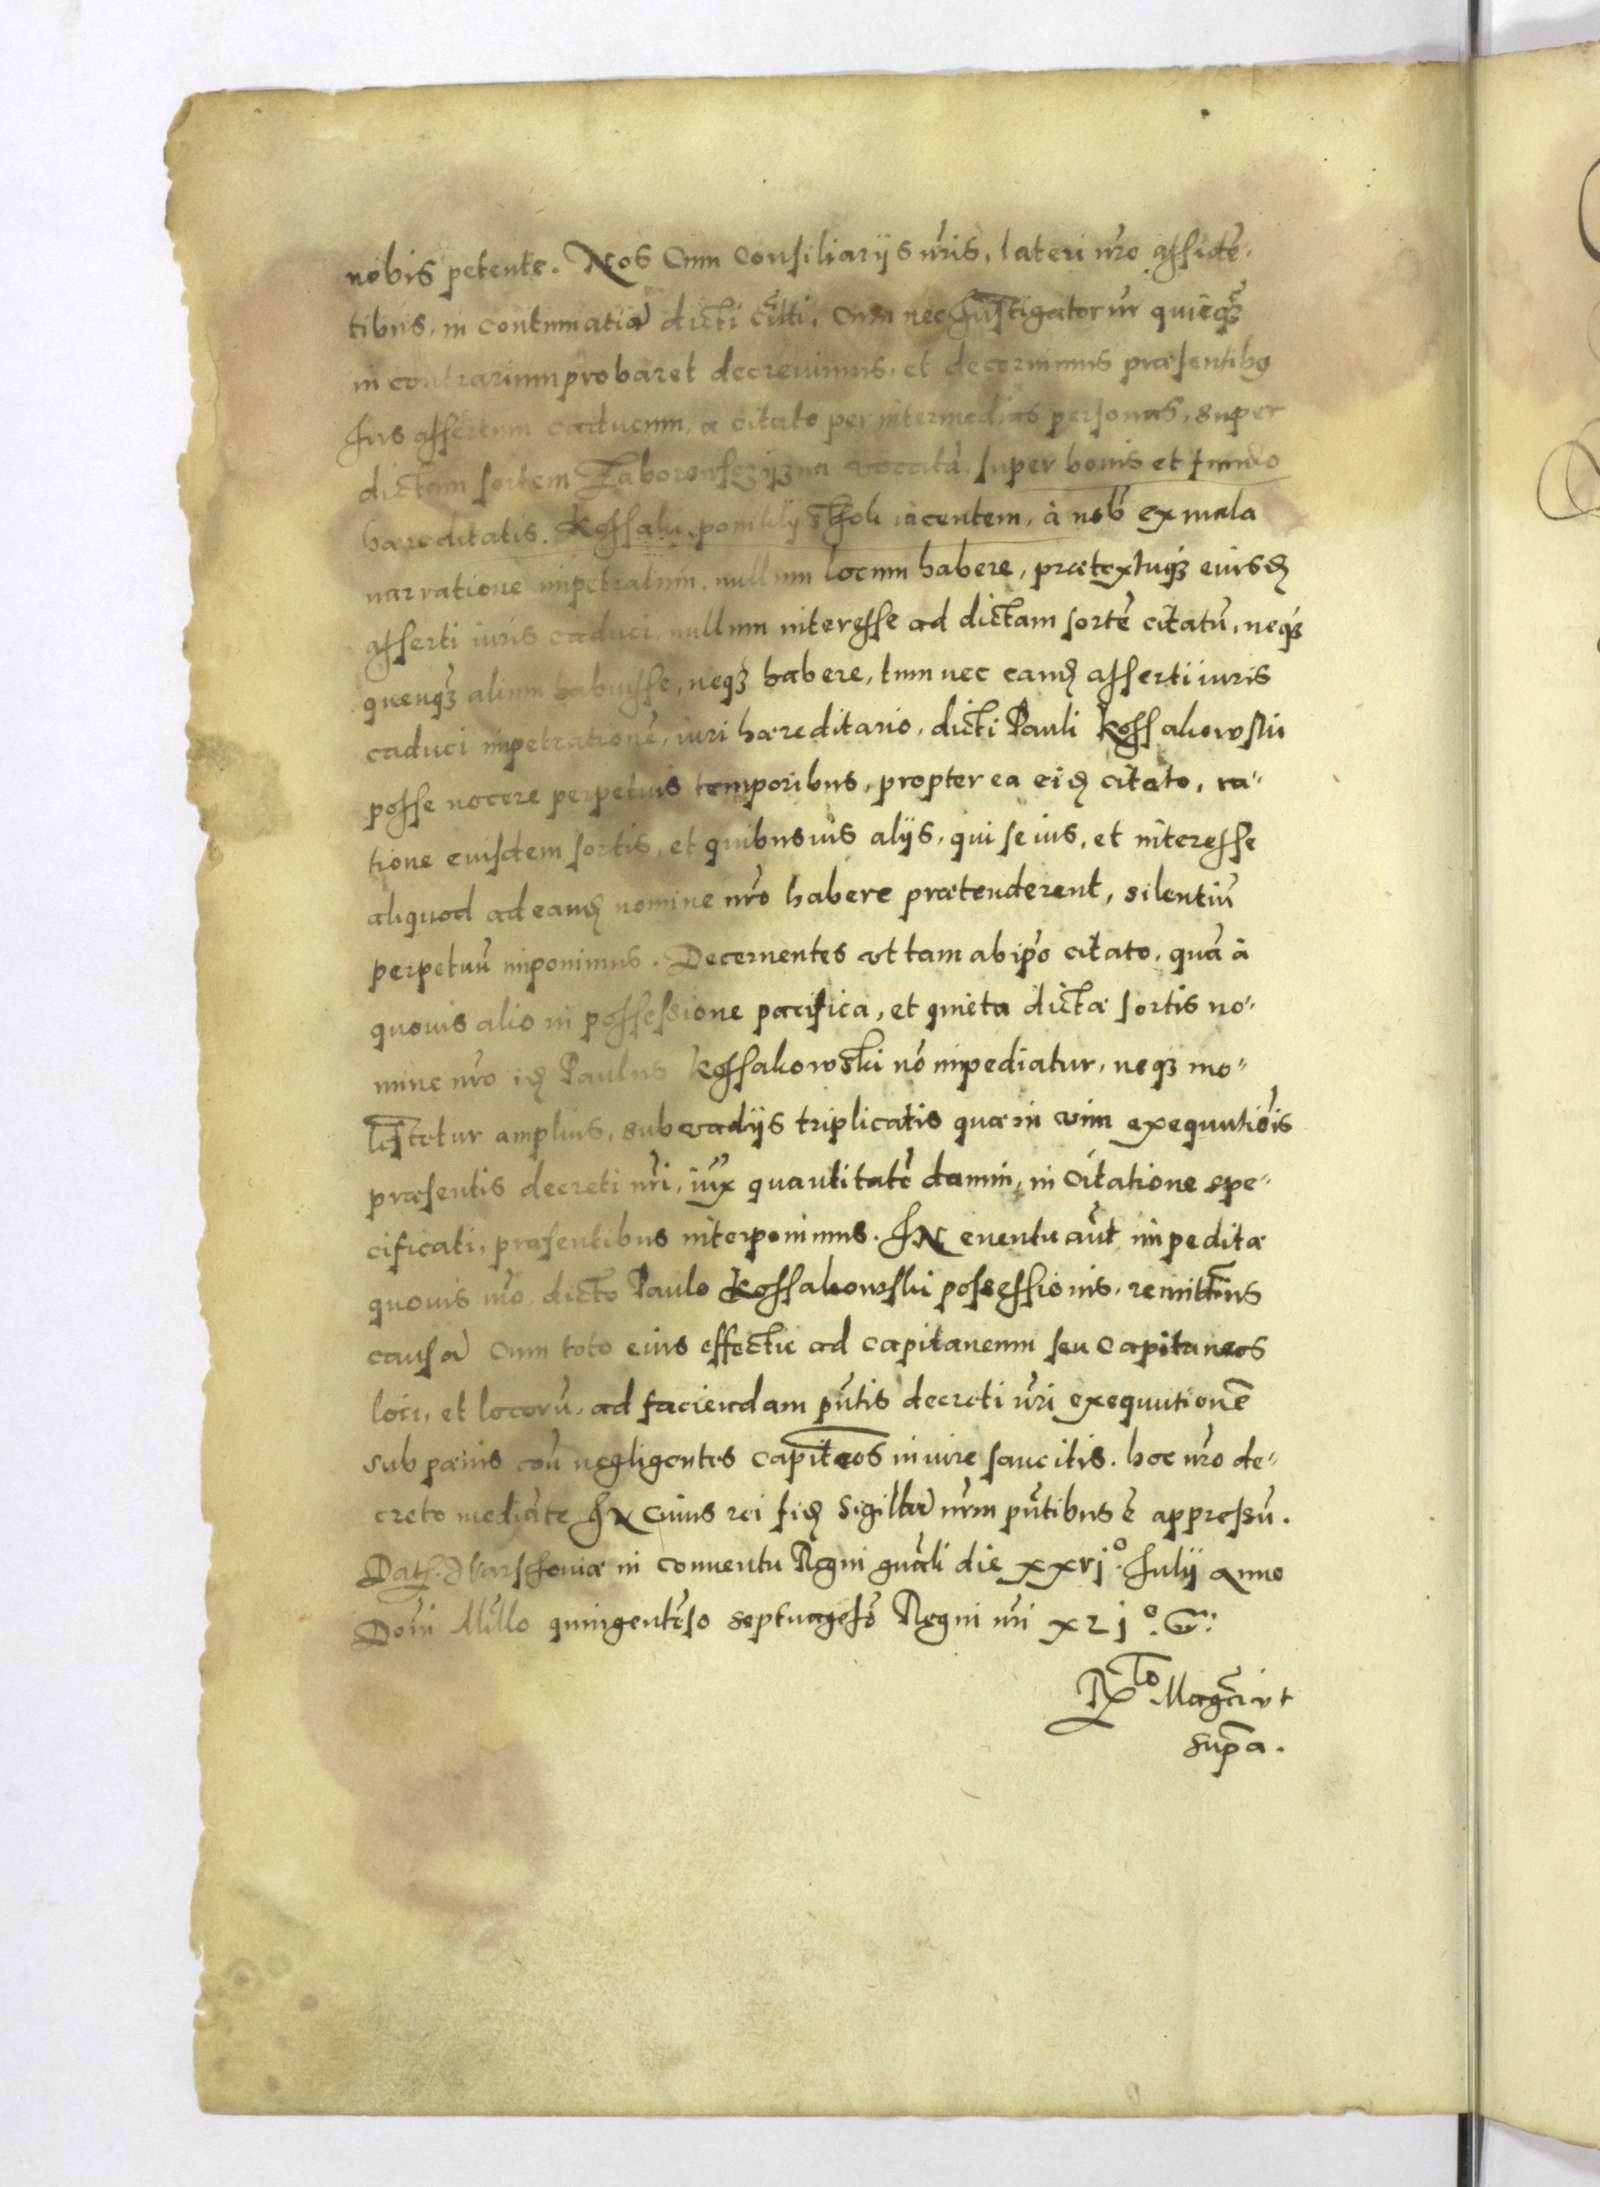 nobis petente. Nos Cum Consiliarijs nr̃is, lateri nr̃o assidẽ-
tibus, in contumatiã dicti citi. Cum nec Instigator nr̃ quicq̃ꝫ
in contrarium probaret decrevimus, et decernimus præsentibꝰ
Ius assertum caducum, a citato per intermedias personas, super
dictam sortem Zaborowszczyzna vocatã, super bonis et fundo
hæreditatis. Kossaki pomikly stok iacentem, à nob̃ ex mala
narratione impetratum, nullum locum habere, prætextuqꝫ eiusd̃
asserti iuris caduci, nullum interesse ad dictam sortẽ citatũ, neqꝫ
quenqꝫ alium habuisse, neqꝫ habere, tum nec eamd̃ asserti iuris
caduci impetrationẽ, iuri hæreditario, dicti Pauli Kossakowski
posse nocere perpetuis temporibus, propterea eid̃ citato, ra-
tione eiusdem sortis, et quibusvis alijs, qui se ius, et interesse
aliquod ad eamd̃ nomine nr̃o habere prætenderent, silentiũ
perpetuũ imponimus. Decernentes ut tam ab ip̃o citato, quã à
quovis alio in possessione pacifica, et quieta dictæ sortis no-
mine nr̃o id̃ Paulus Kossakowski nõ impediatur, neqꝫ mo-
lestetur amplius, sub vadijs triplicatis quæ in vim exequutiõis
præsentis decreti nr̃i, iux̃ quantitatẽ damni, in Citatione spe-
cificati, præsentibus interponimus. IN eventu aũt impeditæ
quovis mõ dicto Paulo Kossakowski possessionis, remittim̃us
causã cum toto eius effectu ad capitaneum seu Capitaneos
loci, et locorũ, ad faciendam pñtis decreti nr̃i exequutionẽ
sub pænis cõn negligentes capit̃eos in iure sancitis. hoc nr̃o de-
creto mediãte IN Cuius rei fid̃ sigillũ nr̃m pñtibus ẽ appressũ.
Datꝭ. Warschoviæ in conventu Regni gñali die xxvjº. Julij Anno
Dom̃i Mil̃lo quingentẽso septuagesõ Regni nr̃i xljº.
R͠to Mag̃ci ut
supr̃a.